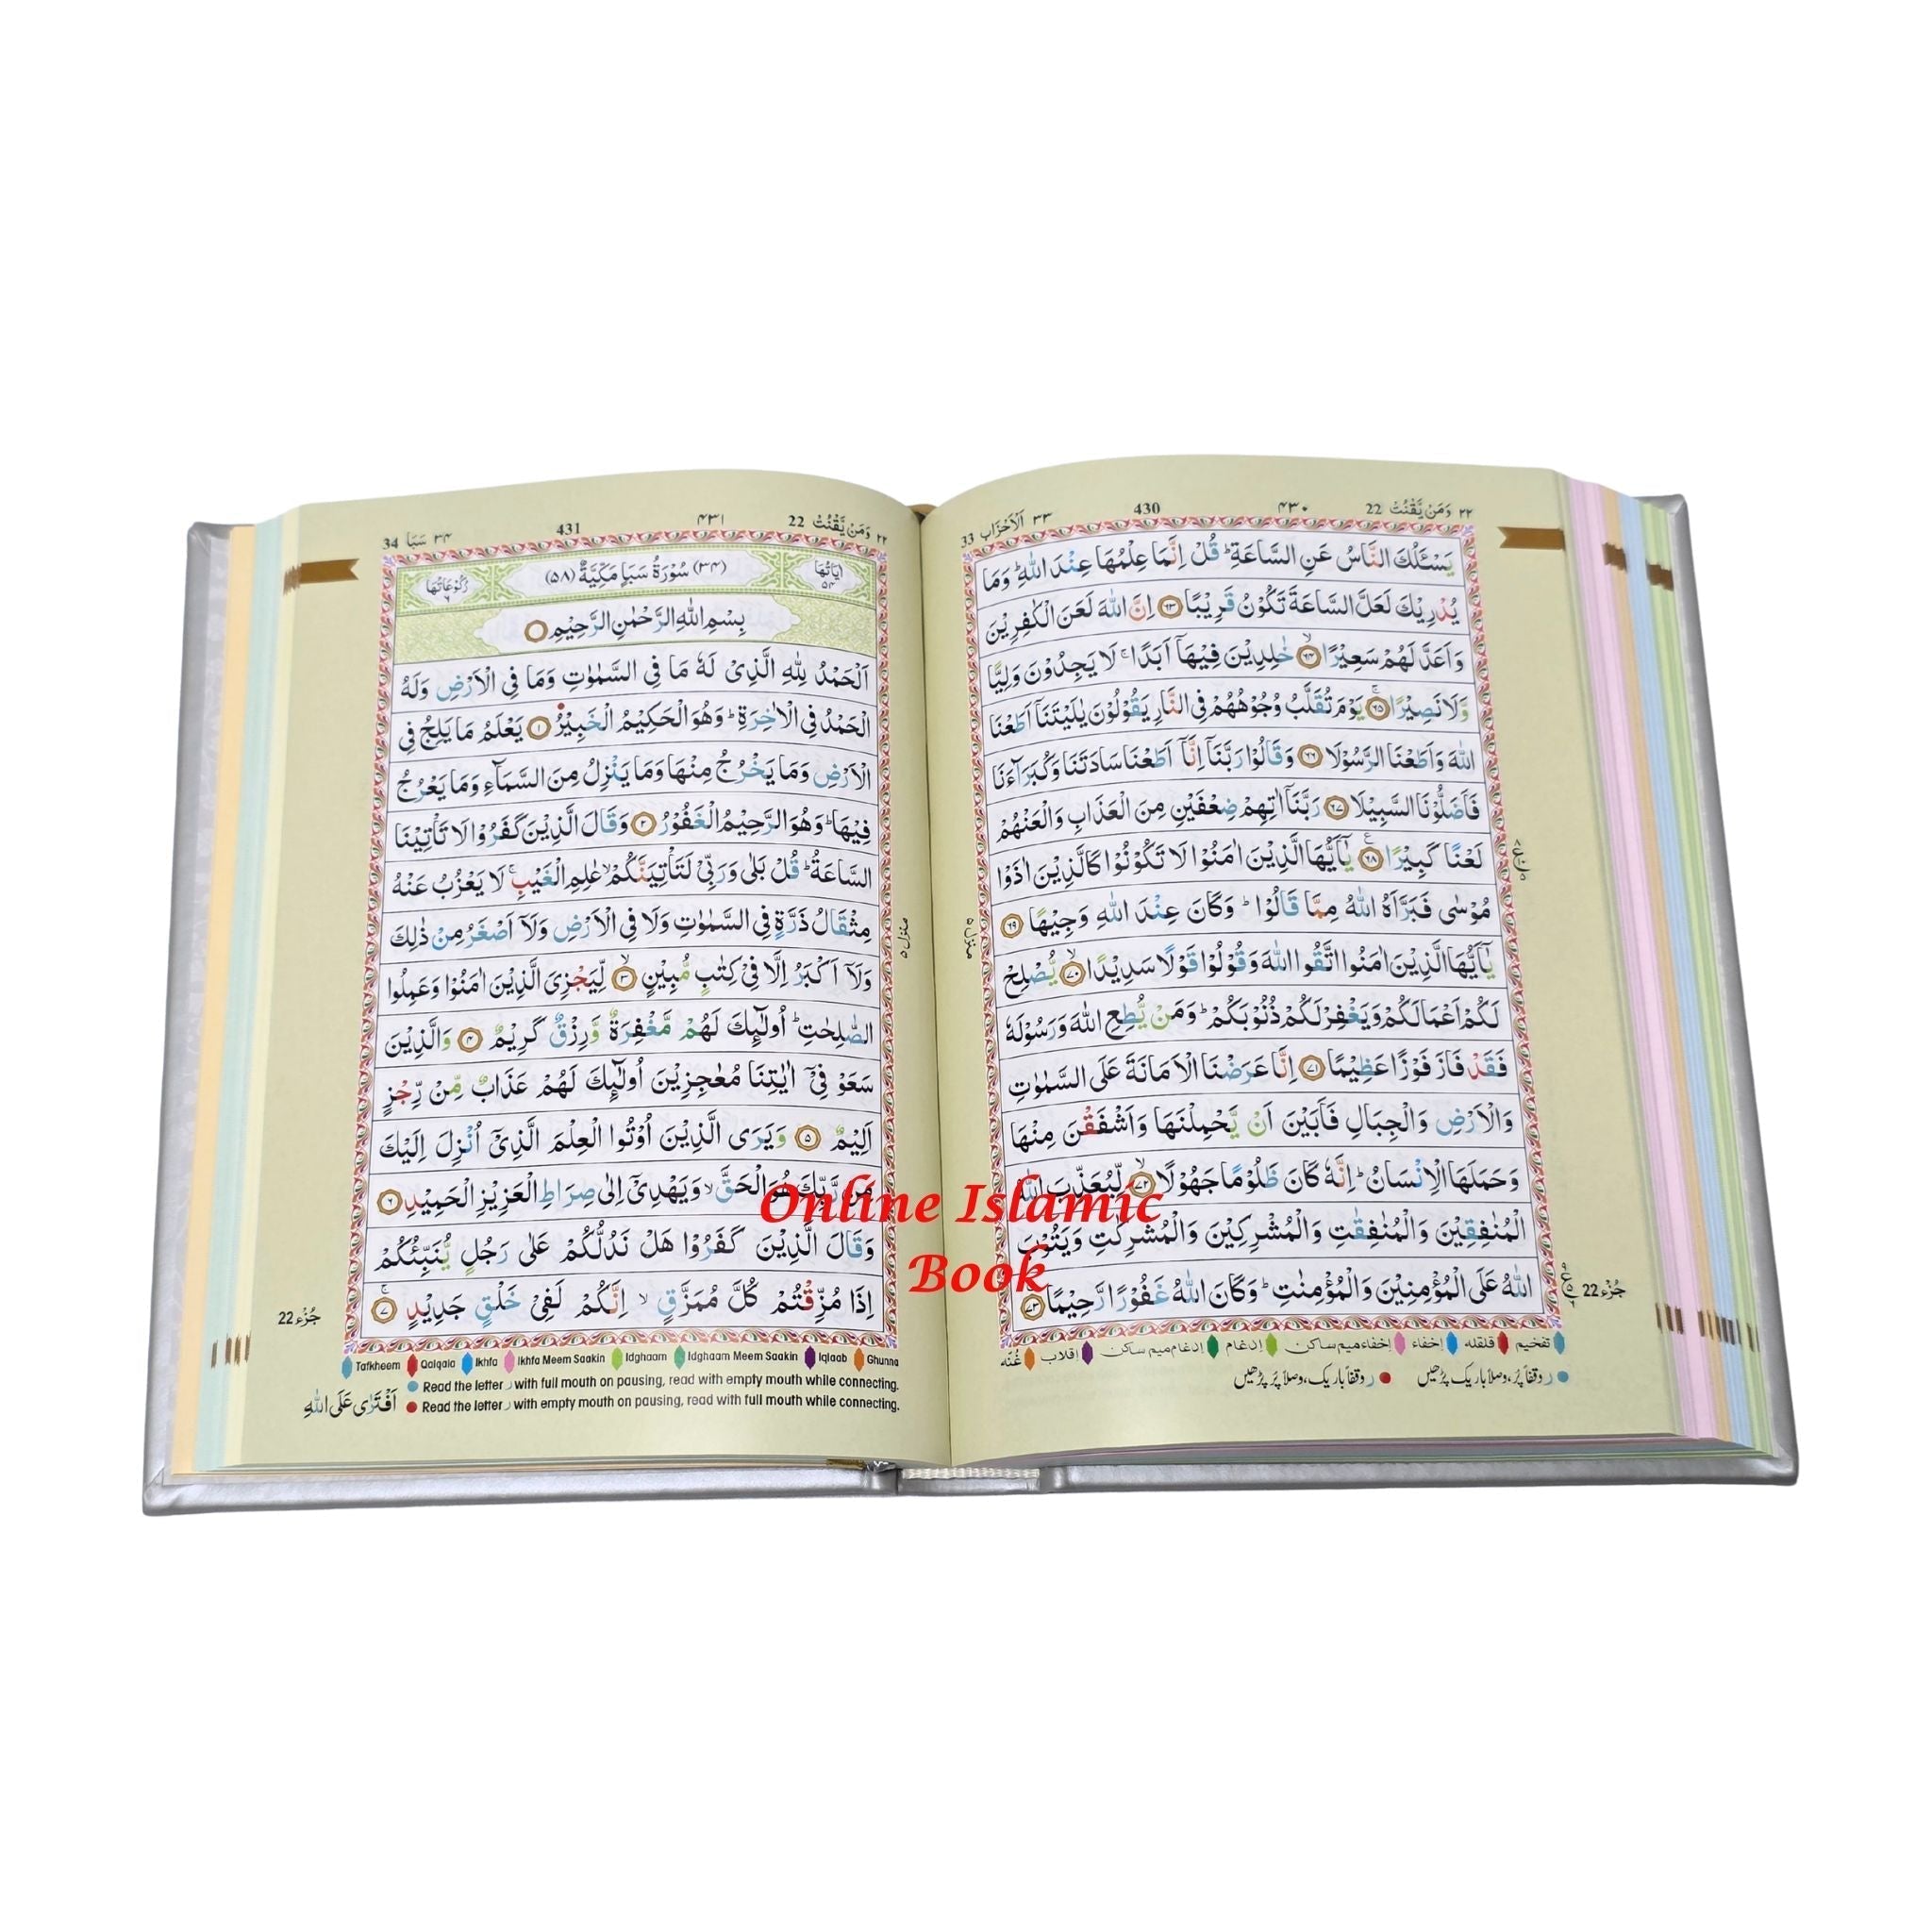 ۲۲ وَمَنْ يَّقْنُتْ 22
۴۳۰
430
۳۳ اَلْاَحْزَاب 33
يَسْـَٔلُكَ النَّاسُ عَنِ السَّاعَةِ ؕ قُلْ اِنَّمَا عِلْمُهَا عِنْدَ اللّٰهِ ؕ وَمَا
يُدْرِيْكَ لَعَلَّ السَّاعَةَ تَكُوْنُ قَرِيْبًا ۶۳ اِنَّ اللّٰهَ لَعَنَ الْكٰفِرِيْنَ
وَاَعَدَّ لَهُمْ سَعِيْرًا ۶۴ خٰلِدِيْنَ فِيْهَاۤ اَبَدًا ۚ لَا يَجِدُوْنَ وَلِيًّا
وَّلَا نَصِيْرًا ۶۵ يَوْمَ تُقَلَّبُ وُجُوْهُهُمْ فِى النَّارِ يَقُوْلُوْنَ يٰلَيْتَنَاۤ اَطَعْنَا
اللّٰهَ وَاَطَعْنَا الرَّسُوْلَا ۶۶ وَقَالُوْا رَبَّنَاۤ اِنَّاۤ اَطَعْنَا سَادَتَنَا وَكُبَرَآءَنَا
فَاَضَلُّوْنَا السَّبِيْلَا ۶۷ رَبَّنَاۤ اٰتِهِمْ ضِعْفَيْنِ مِنَ الْعَذَابِ وَالْعَنْهُمْ
لَعْنًا كَبِيْرًا ۶۸ يٰۤاَيُّهَا الَّذِيْنَ اٰمَنُوْا لَا تَكُوْنُوْا كَالَّذِيْنَ اٰذَوْا
مُوْسٰى فَبَرَّاَهُ اللّٰهُ مِمَّا قَالُوْا ؕ وَكَانَ عِنْدَ اللّٰهِ وَجِيْهًا ۶۹
يٰۤاَيُّهَا الَّذِيْنَ اٰمَنُوا اتَّقُوا اللّٰهَ وَقُوْلُوْا قَوْلًا سَدِيْدًا ۷۰ يُّصْلِحْ
لَكُمْ اَعْمَالَكُمْ وَيَغْفِرْ لَكُمْ ذُنُوْبَكُمْ ؕ وَمَنْ يُّطِعِ اللّٰهَ وَرَسُوْلَهٗ
فَقَدْ فَازَ فَوْزًا عَظِيْمًا ۷۱ اِنَّا عَرَضْنَا الْاَمَانَةَ عَلَى السَّمٰوٰتِ
وَالْاَرْضِ وَالْجِبَالِ فَاَبَيْنَ اَنْ يَّحْمِلْنَهَا وَاَشْفَقْنَ مِنْهَا
وَحَمَلَهَا الْاِنْسَانُ ؕ اِنَّهٗ كَانَ ظَلُوْمًا جَهُوْلًا ۷۲ لِّيُعَذِّبَ اللّٰهُ
الْمُنٰفِقِيْنَ وَالْمُنٰفِقٰتِ وَالْمُشْرِكِيْنَ وَالْمُشْرِكٰتِ وَيَتُوْبَ
اللّٰهُ عَلَى الْمُؤْمِنِيْنَ وَالْمُؤْمِنٰتِ ؕ وَكَانَ اللّٰهُ غَفُوْرًا رَّحِيْمًا ۷۳
جُزْء 22
منزل ۵
تفخیم قلقله إخفاء إخفاء میم ساکن إدغام إدغام میم ساکن إقلاب غُنّه
ر وقفاً پُر، وصلاً باریک پڑھیں ر وقفاً باریک، وصلاً پُر پڑھیں
۲۲ وَمَنْ يَّقْنُتْ 22
۴۳۱
431
۳۴ سَبَا 34
اٰيَاتُهَا ۵۴
(۳۴) سُوْرَةُ سَبَاٍ مَكِّيَّةٌ (۵۸)
رُكُوْعَاتُهَا ۶
بِسْمِ اللّٰهِ الرَّحْمٰنِ الرَّحِيْمِ
اَلْحَمْدُ لِلّٰهِ الَّذِىْ لَهٗ مَا فِى السَّمٰوٰتِ وَمَا فِى الْاَرْضِ وَلَهُ
الْحَمْدُ فِى الْاٰخِرَةِ ؕ وَهُوَ الْحَكِيْمُ الْخَبِيْرُ ۱ يَعْلَمُ مَا يَلِجُ فِى
الْاَرْضِ وَمَا يَخْرُجُ مِنْهَا وَمَا يَنْزِلُ مِنَ السَّمَآءِ وَمَا يَعْرُجُ
فِيْهَا ؕ وَهُوَ الرَّحِيْمُ الْغَفُوْرُ ۲ وَقَالَ الَّذِيْنَ كَفَرُوْا لَا تَاْتِيْنَا
السَّاعَةُ ؕ قُلْ بَلٰى وَرَبِّىْ لَتَاْتِيَنَّكُمْ ۙ عٰلِمِ الْغَيْبِ ۚ لَا يَعْزُبُ عَنْهُ
مِثْقَالُ ذَرَّةٍ فِى السَّمٰوٰتِ وَلَا فِى الْاَرْضِ وَلَاۤ اَصْغَرُ مِنْ ذٰلِكَ
وَلَاۤ اَكْبَرُ اِلَّا فِىْ كِتٰبٍ مُّبِيْنٍ ۳ لِّيَجْزِىَ الَّذِيْنَ اٰمَنُوْا وَعَمِلُوا
الصّٰلِحٰتِ ؕ اُولٰٓئِكَ لَهُمْ مَّغْفِرَةٌ وَّرِزْقٌ كَرِيْمٌ ۴ وَالَّذِيْنَ
سَعَوْ فِىْۤ اٰيٰتِنَا مُعٰجِزِيْنَ اُولٰٓئِكَ لَهُمْ عَذَابٌ مِّنْ رِّجْزٍ
اَلِيْمٌ ۵ وَيَرَى الَّذِيْنَ اُوْتُوا الْعِلْمَ الَّذِىْۤ اُنْزِلَ اِلَيْكَ
مِنْ رَّبِّكَ هُوَ الْحَقَّ ۙ وَيَهْدِىْۤ اِلٰى صِرَاطِ الْعَزِيْزِ الْحَمِيْدِ ۶
وَقَالَ الَّذِيْنَ كَفَرُوْا هَلْ نَدُلُّكُمْ عَلٰى رَجُلٍ يُّنَبِّئُكُمْ
اِذَا مُزِّقْتُمْ كُلَّ مُمَزَّقٍ ۙ اِنَّكُمْ لَفِىْ خَلْقٍ جَدِيْدٍ ۷
جُزْء 22
منزل ۵
Tafkheem Qalqala Ikhfa Ikhfa Meem Saakin Idghaam Idghaam Meem Saakin Iqlaab Ghunna
Read the letter ر with full mouth on pausing, read with empty mouth while connecting.
Read the letter ر with empty mouth on pausing, read with full mouth while connecting.
اَفْتَرٰى عَلَى اللّٰهِ
Online Islamic
Book